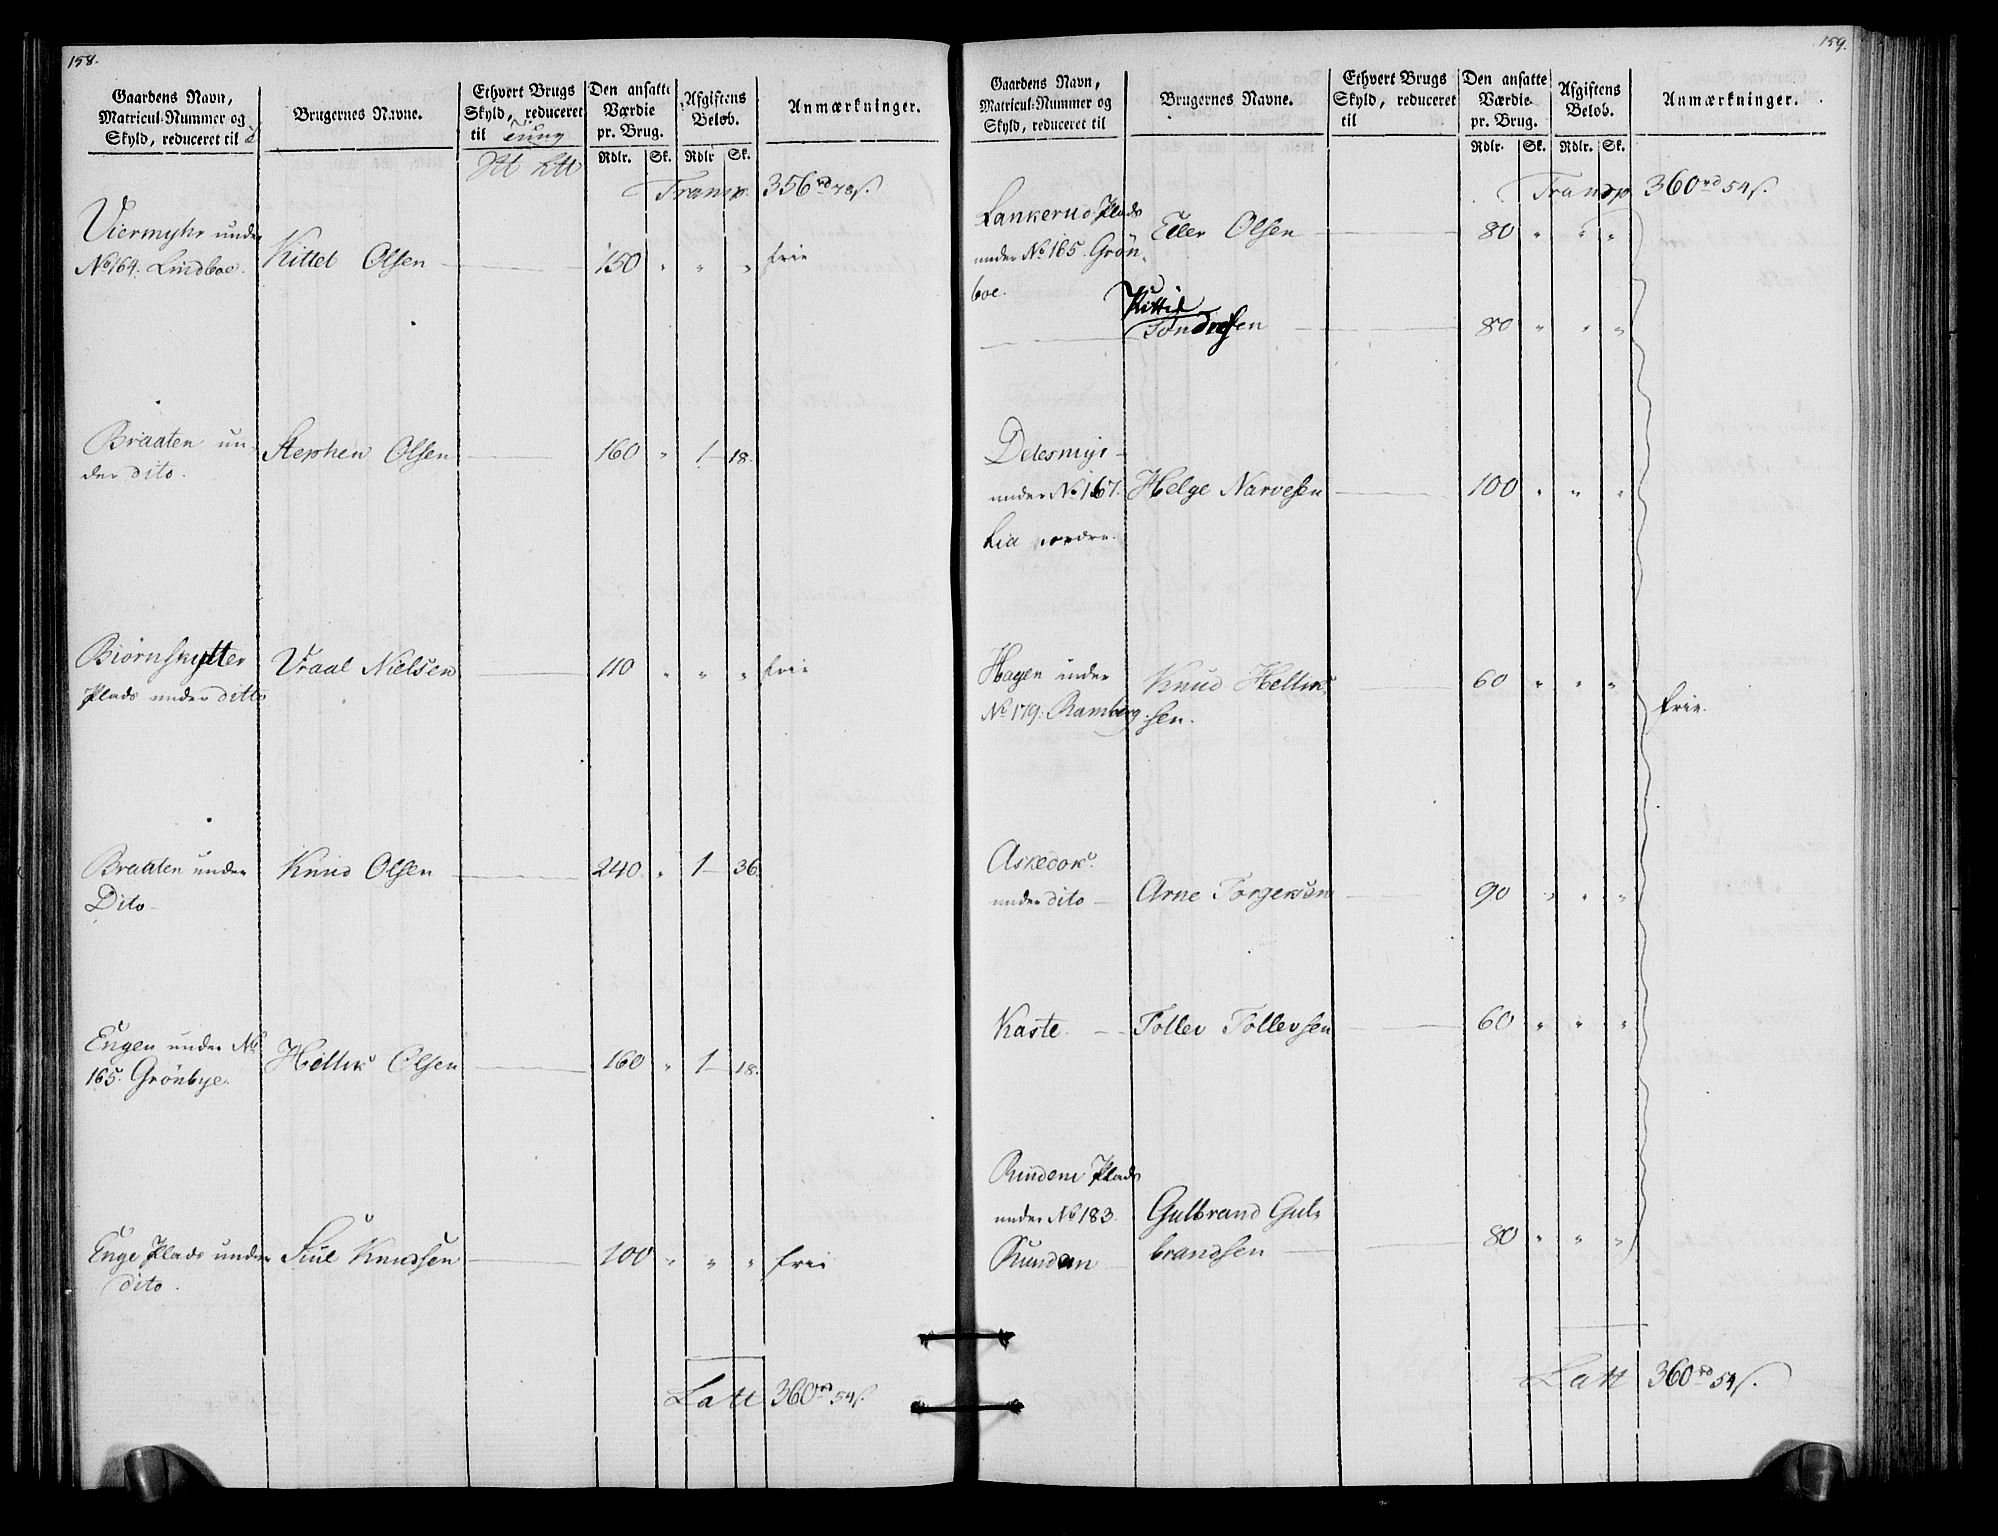 158.
Gaardens Navn, Matricul-Nummer og Skyld, reduceret til
Brugernes Navne.
Ethvert Brugs Skyld, reduceret til Tung
Den ansatte Værdie pr. Brug.
Afgiftens Beløb.
Anmærkninger.
Rdlr. Sk. Rdlr Sk.
Transp. 356 rd 78 s.
Viermyhr under
No 164. Lindboe. Kittel Olsen 150 " " " frie
Braaten un-
der dito. Stephen Olsen 160 " 1 18.
Biørnskytter
Plads under ditto Vraal Nielsen 110 " " " frie
Braaten under
Dito Knud Olsen 240 " 1 36.
Engen under No
165. Grönbye. Hellik Olsen 160 " 1 18.
Enge Plads under
dito. Juul Knudsen 100 " " " frie
Latt 360 rd 54 s.
159.
Gaardens Navn, Matricul-Nummer og Skyld, reduceret til
Brugernes Navne.
Ethvert Brugs Skyld, reduceret til
Den ansatte Værdie pr. Brug.
Afgiftens Beløb.
Anmærkninger.
Rdlr. Sk. Rdlr. Sk.
Transp 360 rd 54 s.
Lankerud Plads
under No 165. Grön-
boe. Eller Olsen 80 " " "
Kittil
Tondresen 80 " " "
Delesmyr
under No 167.
Lia nordre. Helge Narvesen 100 " " "
Hagen under
No 179. Ramberg. Knud Hellik-
sen. 60 " " " frie.
Askedok
under dito Arne Torgersen 90 " " "
Kaste. Toller Tollersen 60 " " "
Rundene Plads
under No 183.
Rundan Gulbrand Gul-
brandsen 80 " " "
Latt 360 rd 54 s.